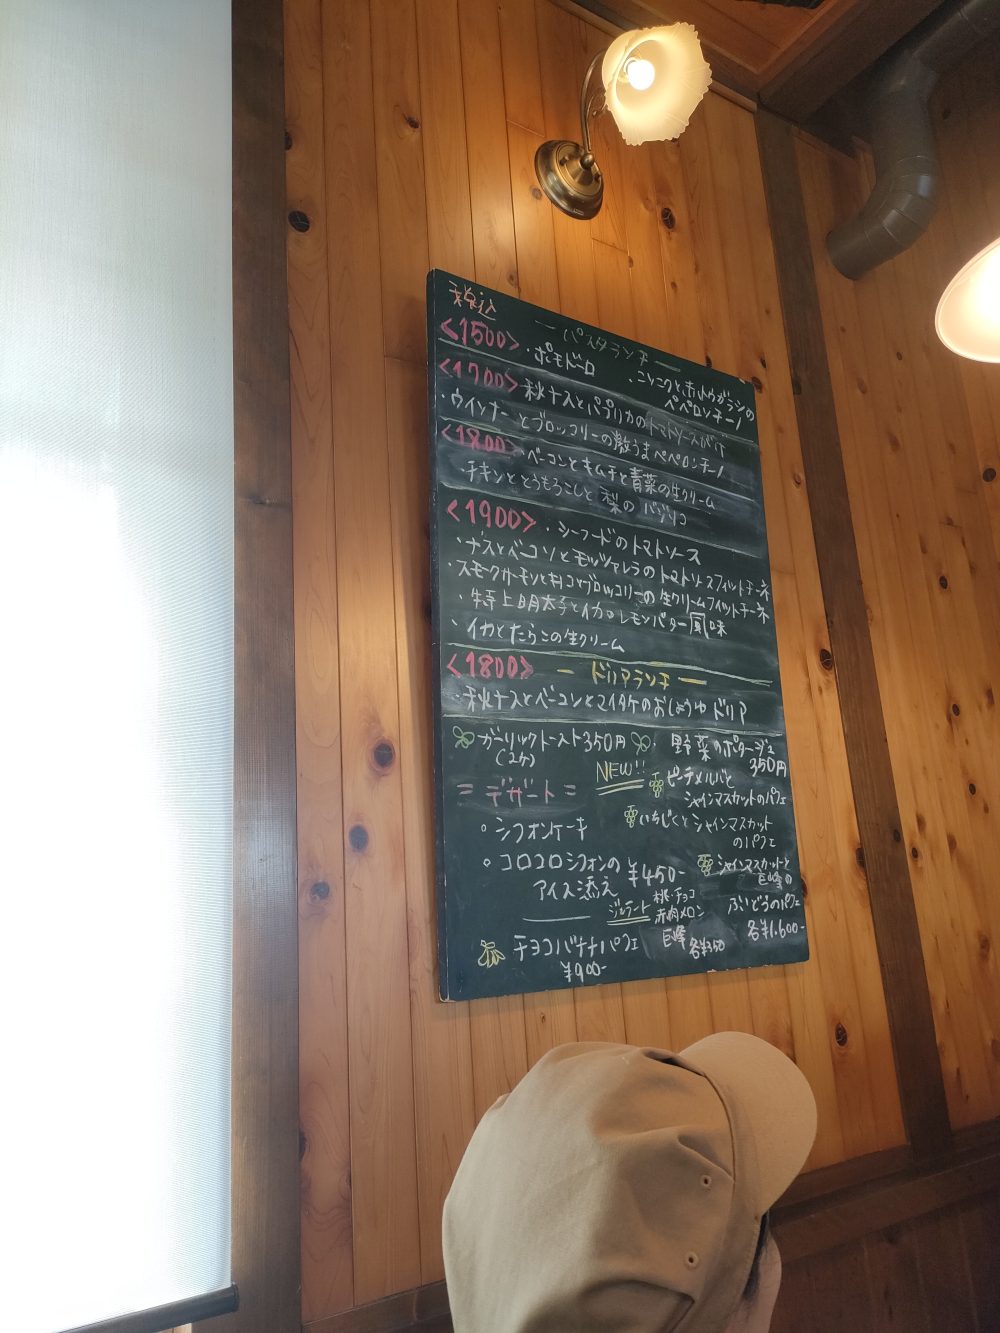 税込
ー パスタランチ ー
<1500>・ポモドーロ ・ニンニクと赤トウガラシの
ペペロンチーノ
<1700>・秋ナスとパプリカのトマトソース
・ウインナーとブロッコリーの激うまペペロンチーノ
<1800>・ベーコンとキムチと青菜の生クリーム
・チキンととうもろこしと梨の バジリコ
<1900>・シーフードのトマトソース
・ナスとベーコンとモッツァレラのトマトソースフィットチーネ
・スモークサーモンとキノコとブロッコリーの生クリームフィットチーネ
・特上明太子とイカのレモンバター風味
・イカとたらこの生クリーム
<1800> ー ドリアランチ ー
・秋ナスとベーコンとマイタケのおしょうゆドリア
ガーリックトースト350円
(2ケ)
・野菜のポタージュ
350円
= デザート =
・シフォンケーキ
・コロコロシフォンの
アイス添え ¥450-
ジェラート
桃・チョコ
赤肉メロン
巨峰 各¥350
チョコバナナパフェ
¥900-
NEW!!
ピーチメルバと
シャインマスカットのパフェ
いちじくとシャインマスカット
のパフェ
シャインマスカットと
巨峰の
ぶどうのパフェ
各¥1.600-